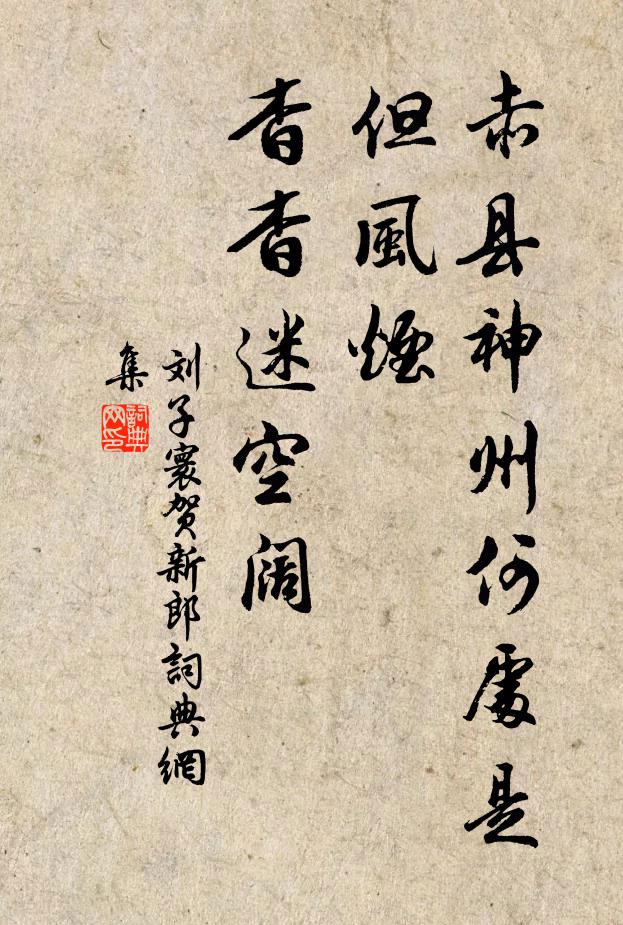 赤县神州何處是
但風煙
杳杳迷空阔
刘子寰贺新郎詞典網
集
詞典网印